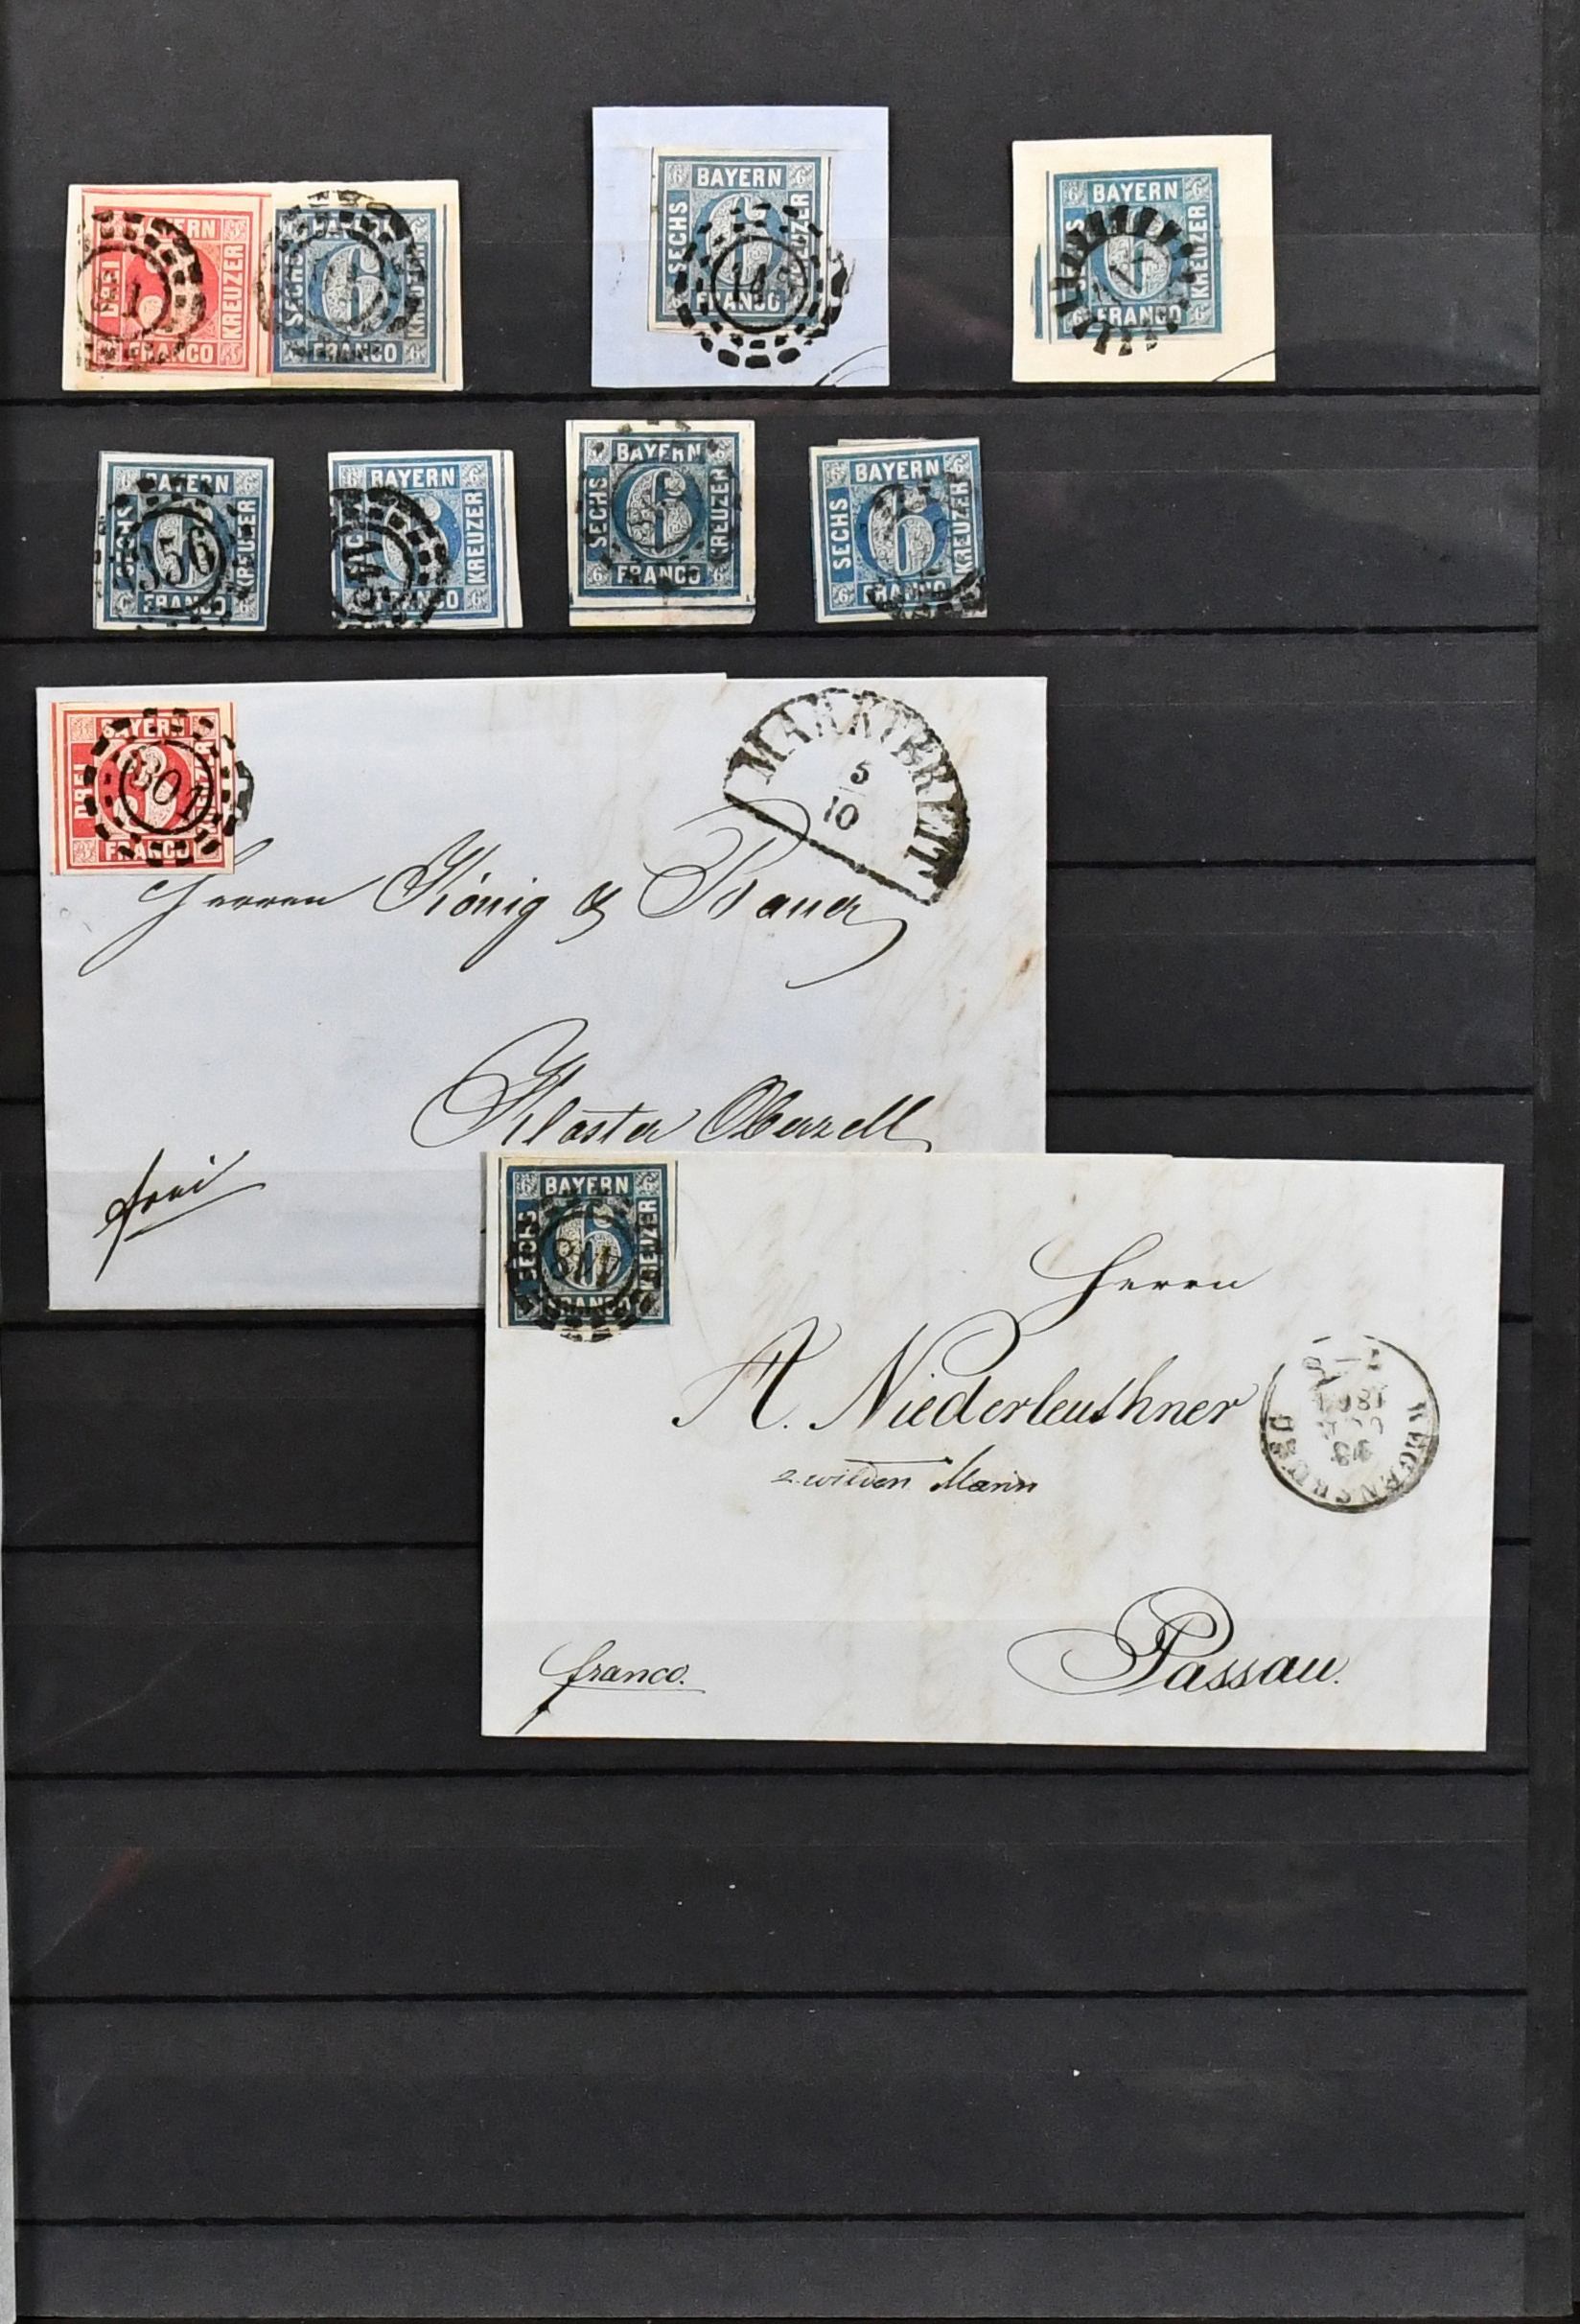 BAYERN
DREI
KREUZER
FRANCO
BAYERN
SECHS
KREUZER
FRANCO
BAYERN
SECHS
KREUZER
FRANCO
BAYERN
KREUZER
FRANCO
BAYERN
SECHS
KREUZER
FRANCO
356
BAYERN
SECHS
KREUZER
FRANCO
BAYERN
SECHS
KREUZER
FRANCO
BAYERN
SECHS
KREUZER
FRANCO
BAYERN
DREI
KREUZER
FRANCO
301
MARKTBREIT
5
10
Herren König & Bauer
Kloster Oberzell
frei
BAYERN
SECHS
KREUZER
FRANCO
Herrn
A. Niederleuthner
z. wilden Mann
REGENSBURG
Passau.
franco.